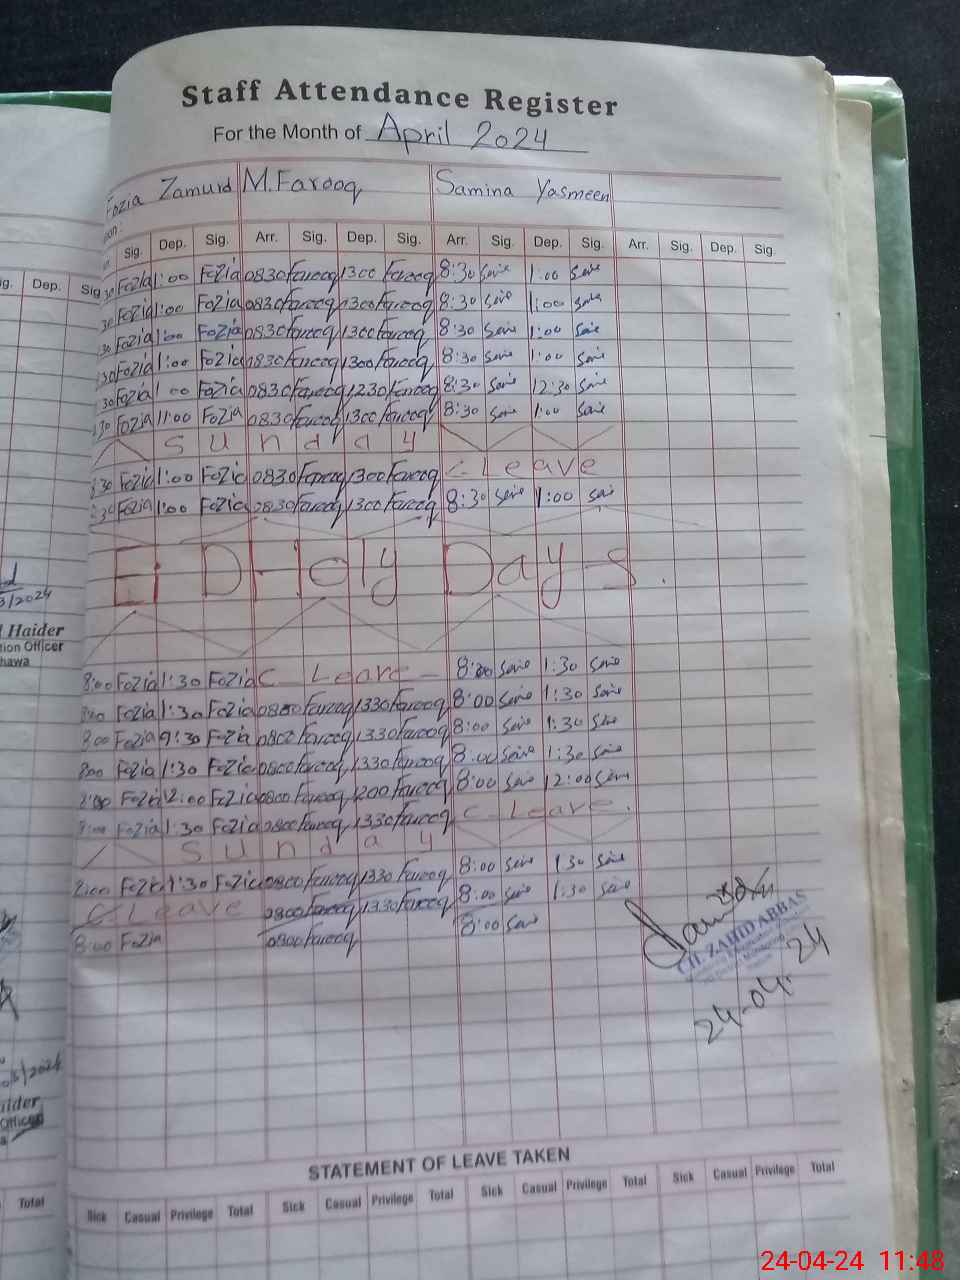 Staff Attendance Register
For the Month of April 2024
Fozia Zamurd M.Farooq Samina Yasmeen
Sig. Dep. Sig. Arr. Sig. Dep. Sig. Arr. Sig. Dep. Sig. Arr. Sig. Dep. Sig.
g. Dep. Sig
:30 Fozia 1:00 Fozia 0830 Farooq 1300 Farooq 8:30 1:00
30 Fozia 1:00 Fozia 0830 Farooq 1300 Farooq 8:30 1:00
:30 Fozia 1:00 Fozia 0830 Farooq 1300 Farooq 8:30 1:00
:30 Fozia 1:00 Fozia 0830 Farooq 1300 Farooq 8:30 1:00
30 Fozia 1:00 Fozia 0830 Farooq 1230 Farooq 8:30 12:30
:30 Fozia 1:00 Fozia 0830 Farooq 1300 Farooq 8:30 1:00
Sunday
8:30 Fozia 1:00 Fozia 0830 Farooq 1300 Farooq C-Leave
:30 Fozia 1:00 Fozia 0830 Farooq 1300 Farooq 8:30 1:00
EiD Holy Days.
3/2024
Haider
tion Officer
hawa
8:00 Fozia 1:30 Fozia C-Leave- 8:00 1:30
8:00 Fozia 1:30 Fozia 0800 Farooq 1330 Farooq 8:00 1:30
8:00 Fozia 1:30 Fozia 0800 Farooq 1330 Farooq 8:00 1:30
8:00 Fozia 1:30 Fozia 0800 Farooq 1330 Farooq 8:00 1:30
8:00 Fozia 12:00 Fozia 0800 Farooq 1200 Farooq 8:00 12:00
8:00 Fozia 1:30 Fozia 0800 Farooq 1330 Farooq C-Leave.
Sunday
8:00 Fozia 1:30 Fozia 0800 Farooq 1330 Farooq 8:00 1:30
C-Leave 0800 Farooq 1330 Farooq 8:00 1:30
8:00 Fozia 0800 Farooq 8:00
CH. ZAHID ABBAS
24-04-24
/2024
ilder
Officer
STATEMENT OF LEAVE TAKEN
Total Sick Casual Privilege Total Sick Casual Privilege Total Sick Casual Privilege Total Sick Casual Privilege Total
24-04-24 11:48